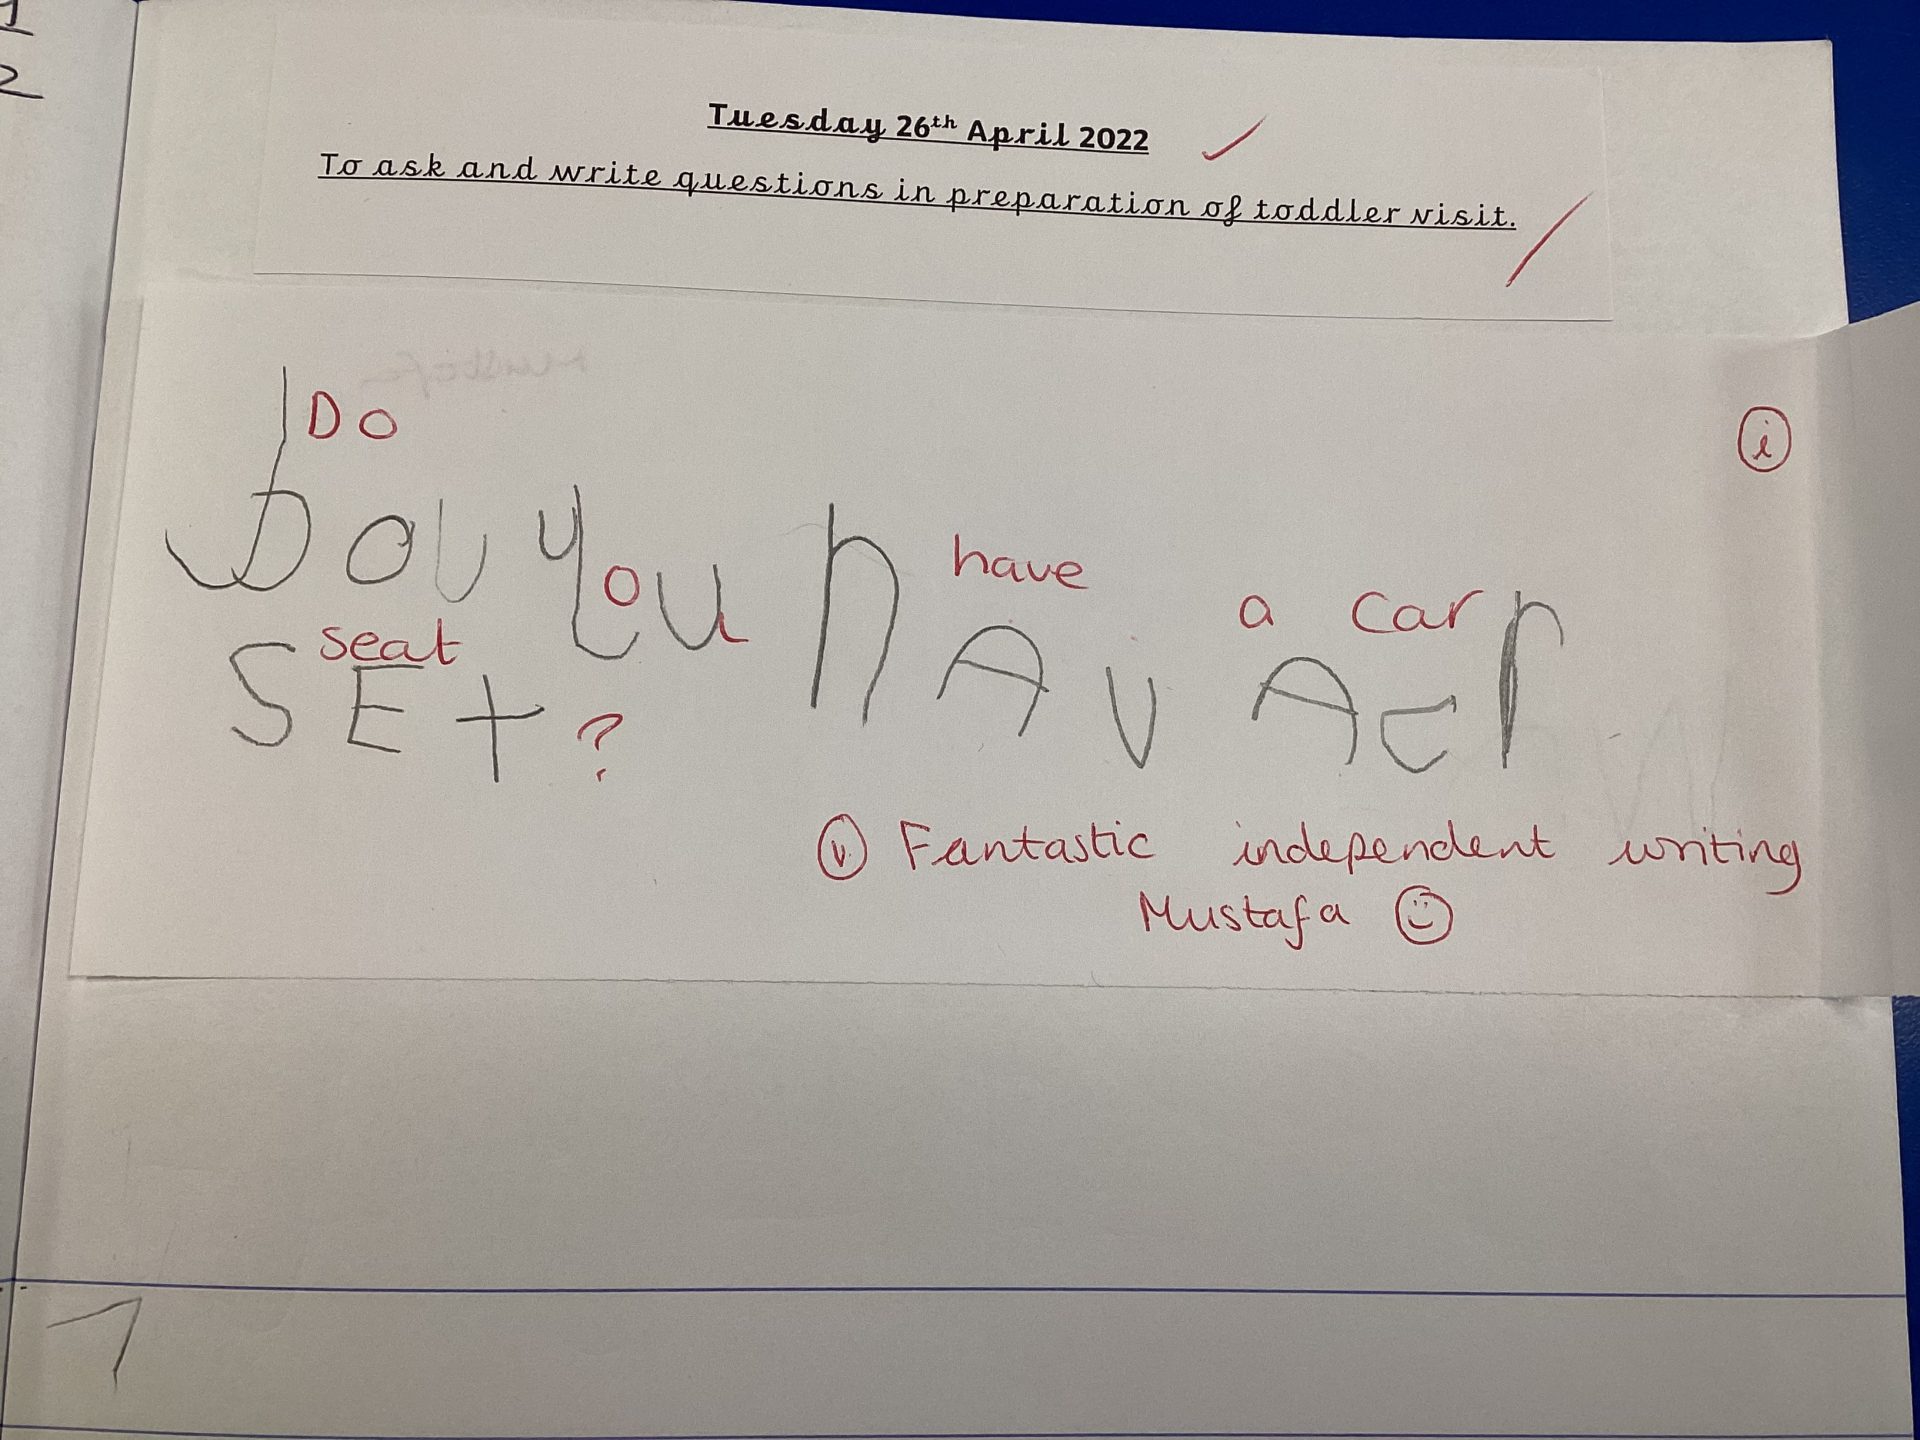 1
2
Tuesday 26th April 2022
To ask and write questions in preparation of toddler visit.
i
Do
Dou you h have a car
AV Acr
seat
SEt ?
v Fantastic independent writing
Mustafa
1